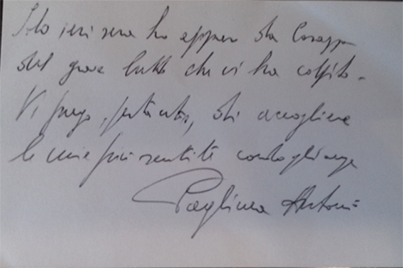 Solo ieri sera ho appreso da
del grave lutto che vi ha colpito.
Vi prego, pertanto, di accogliere
le mie più sentite condoglianze
Antonio